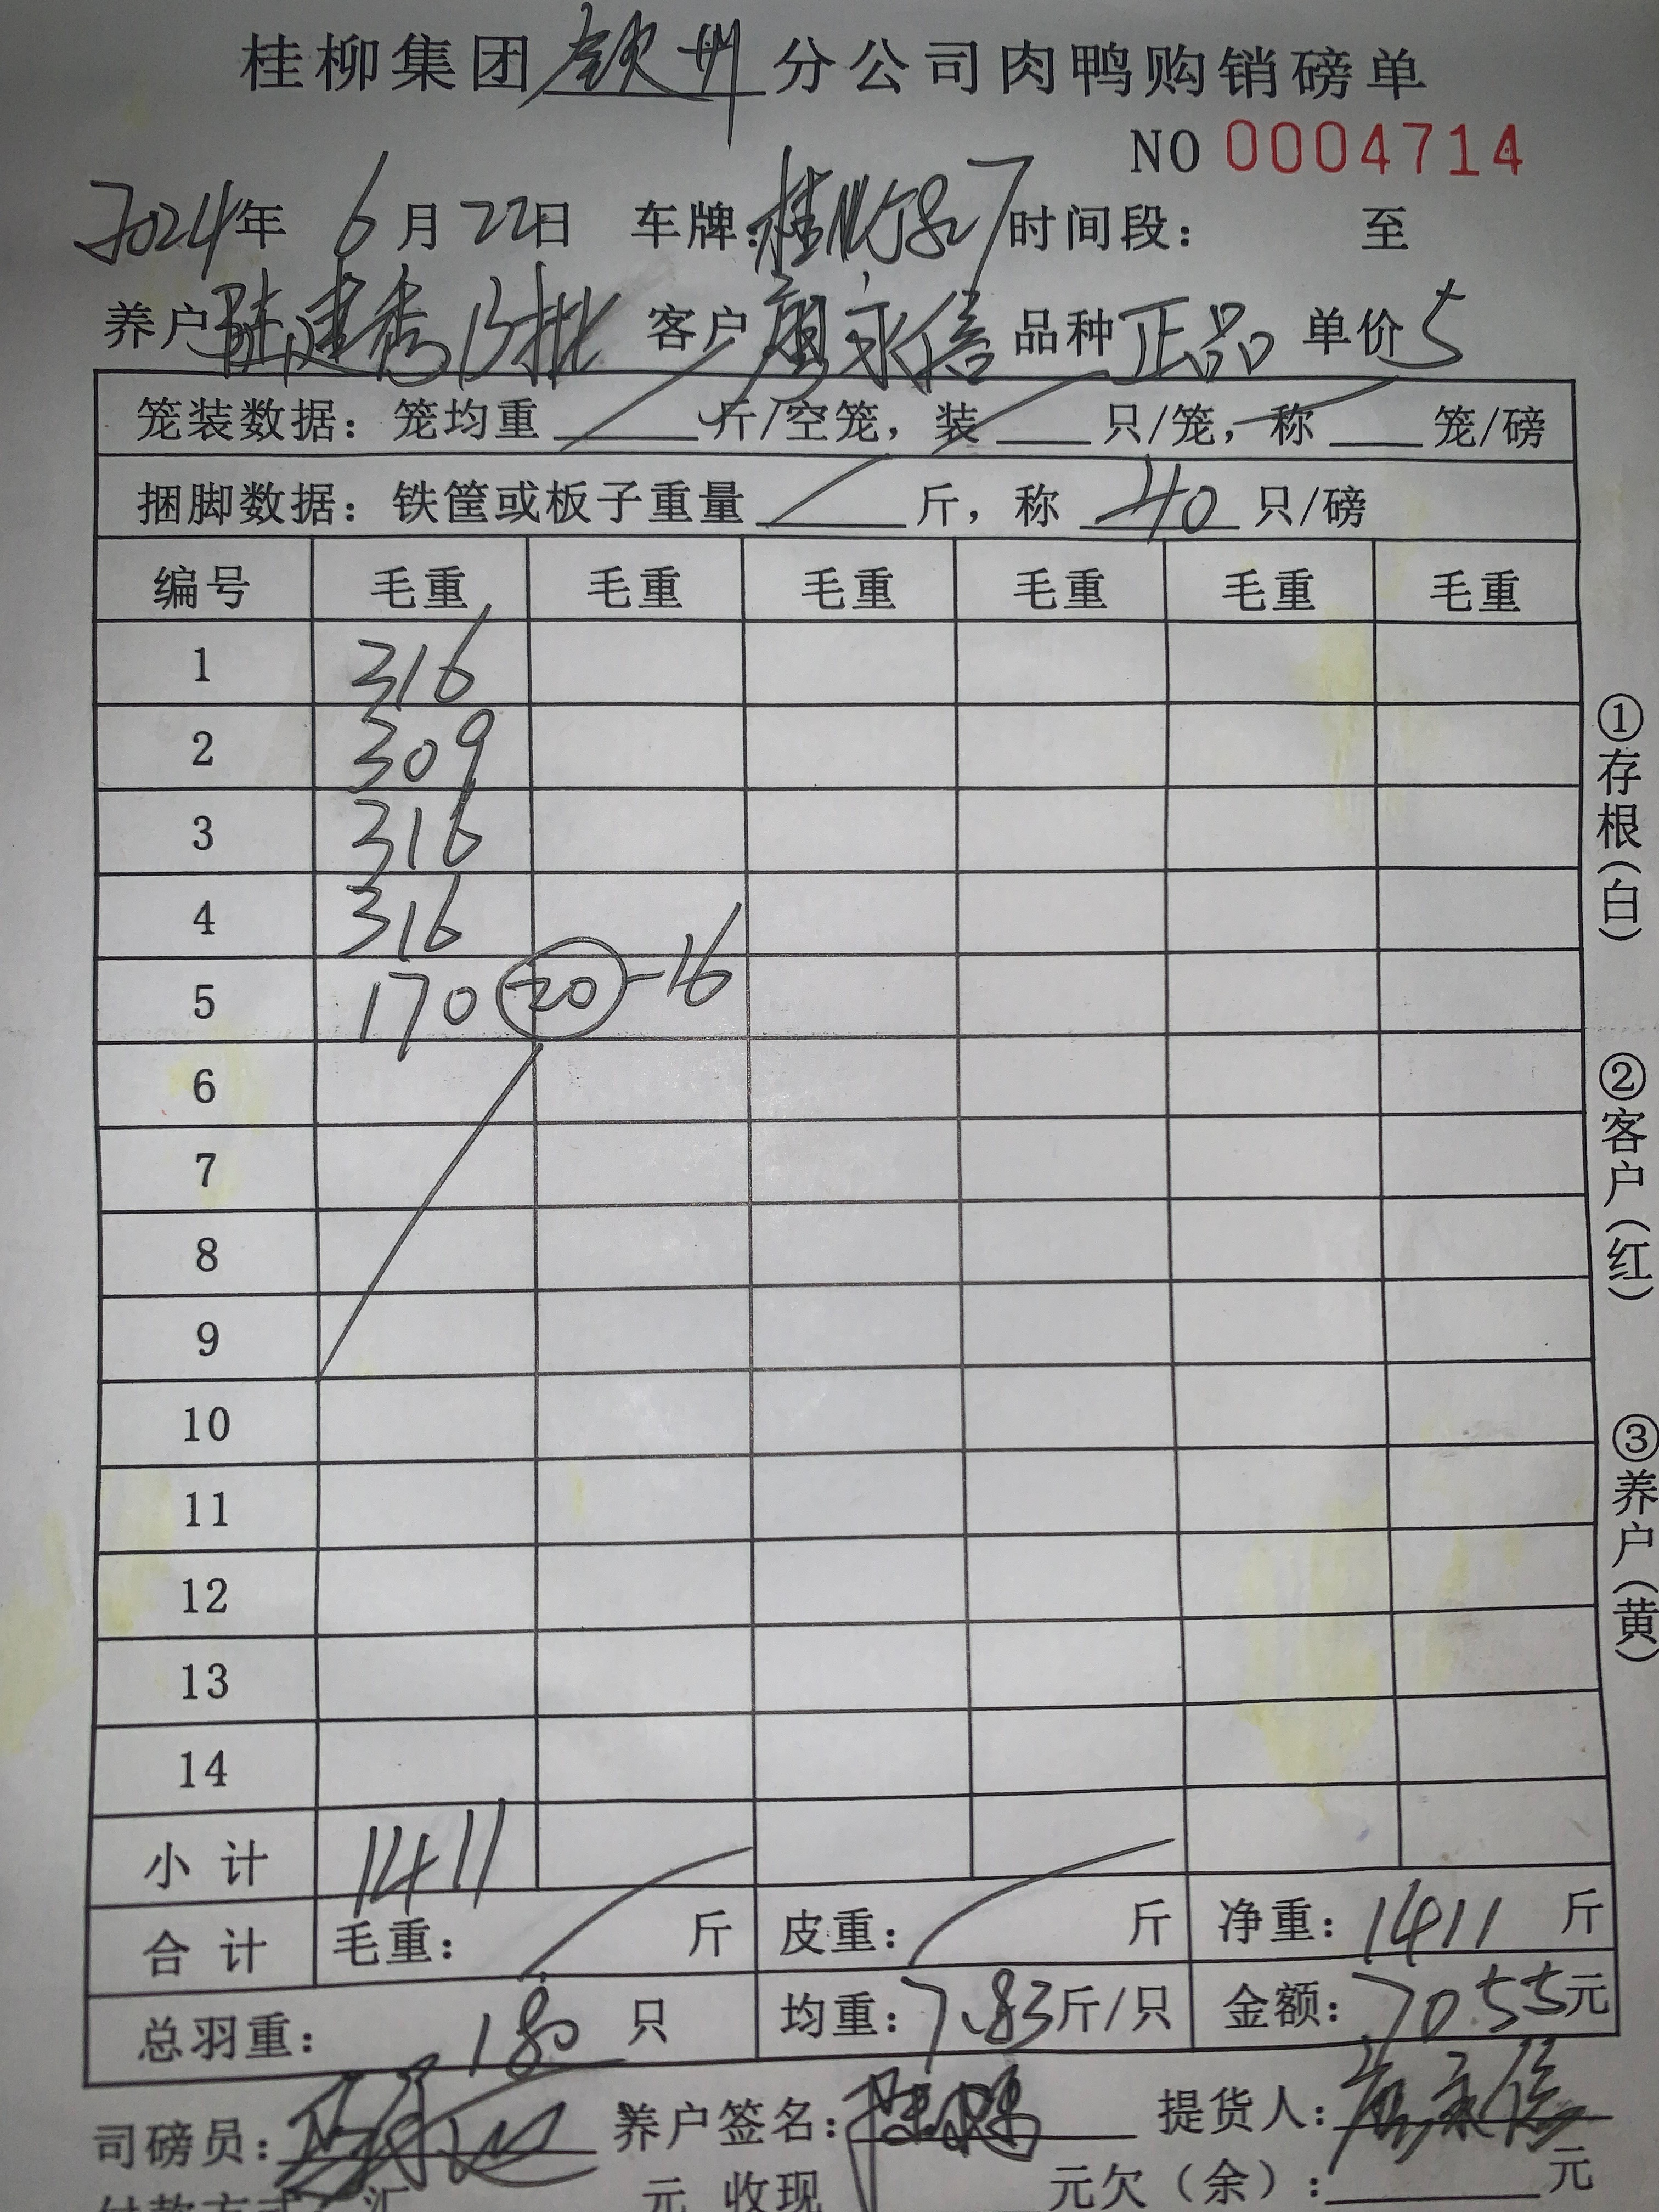 桂柳集团钦州分公司肉鸭购销磅单
NO 0004714
2024年 6月22日 车牌: 时间段: 至
养户陆建秀13批 客户 永信 品种正品 单价5
笼装数据: 笼均重 斤/空笼, 装 只/笼, 称 笼/磅
捆脚数据: 铁筐或板子重量 斤, 称 40 只/磅
编号 毛重 毛重 毛重 毛重 毛重 毛重
1 316
2 309
3 316
4 316
5 170 20 -16
6
7
8
9
10
11
12
13
14
小计 1411
合计 毛重: 斤 皮重: 斤 净重: 1411 斤
总羽重: 180 只 均重: 7.83斤/只 金额: 7055元
司磅员: 养户签名: 提货人: 永信
元 收现 元欠(余): 元
①存根(白)
②客户(红)
③养户(黄)